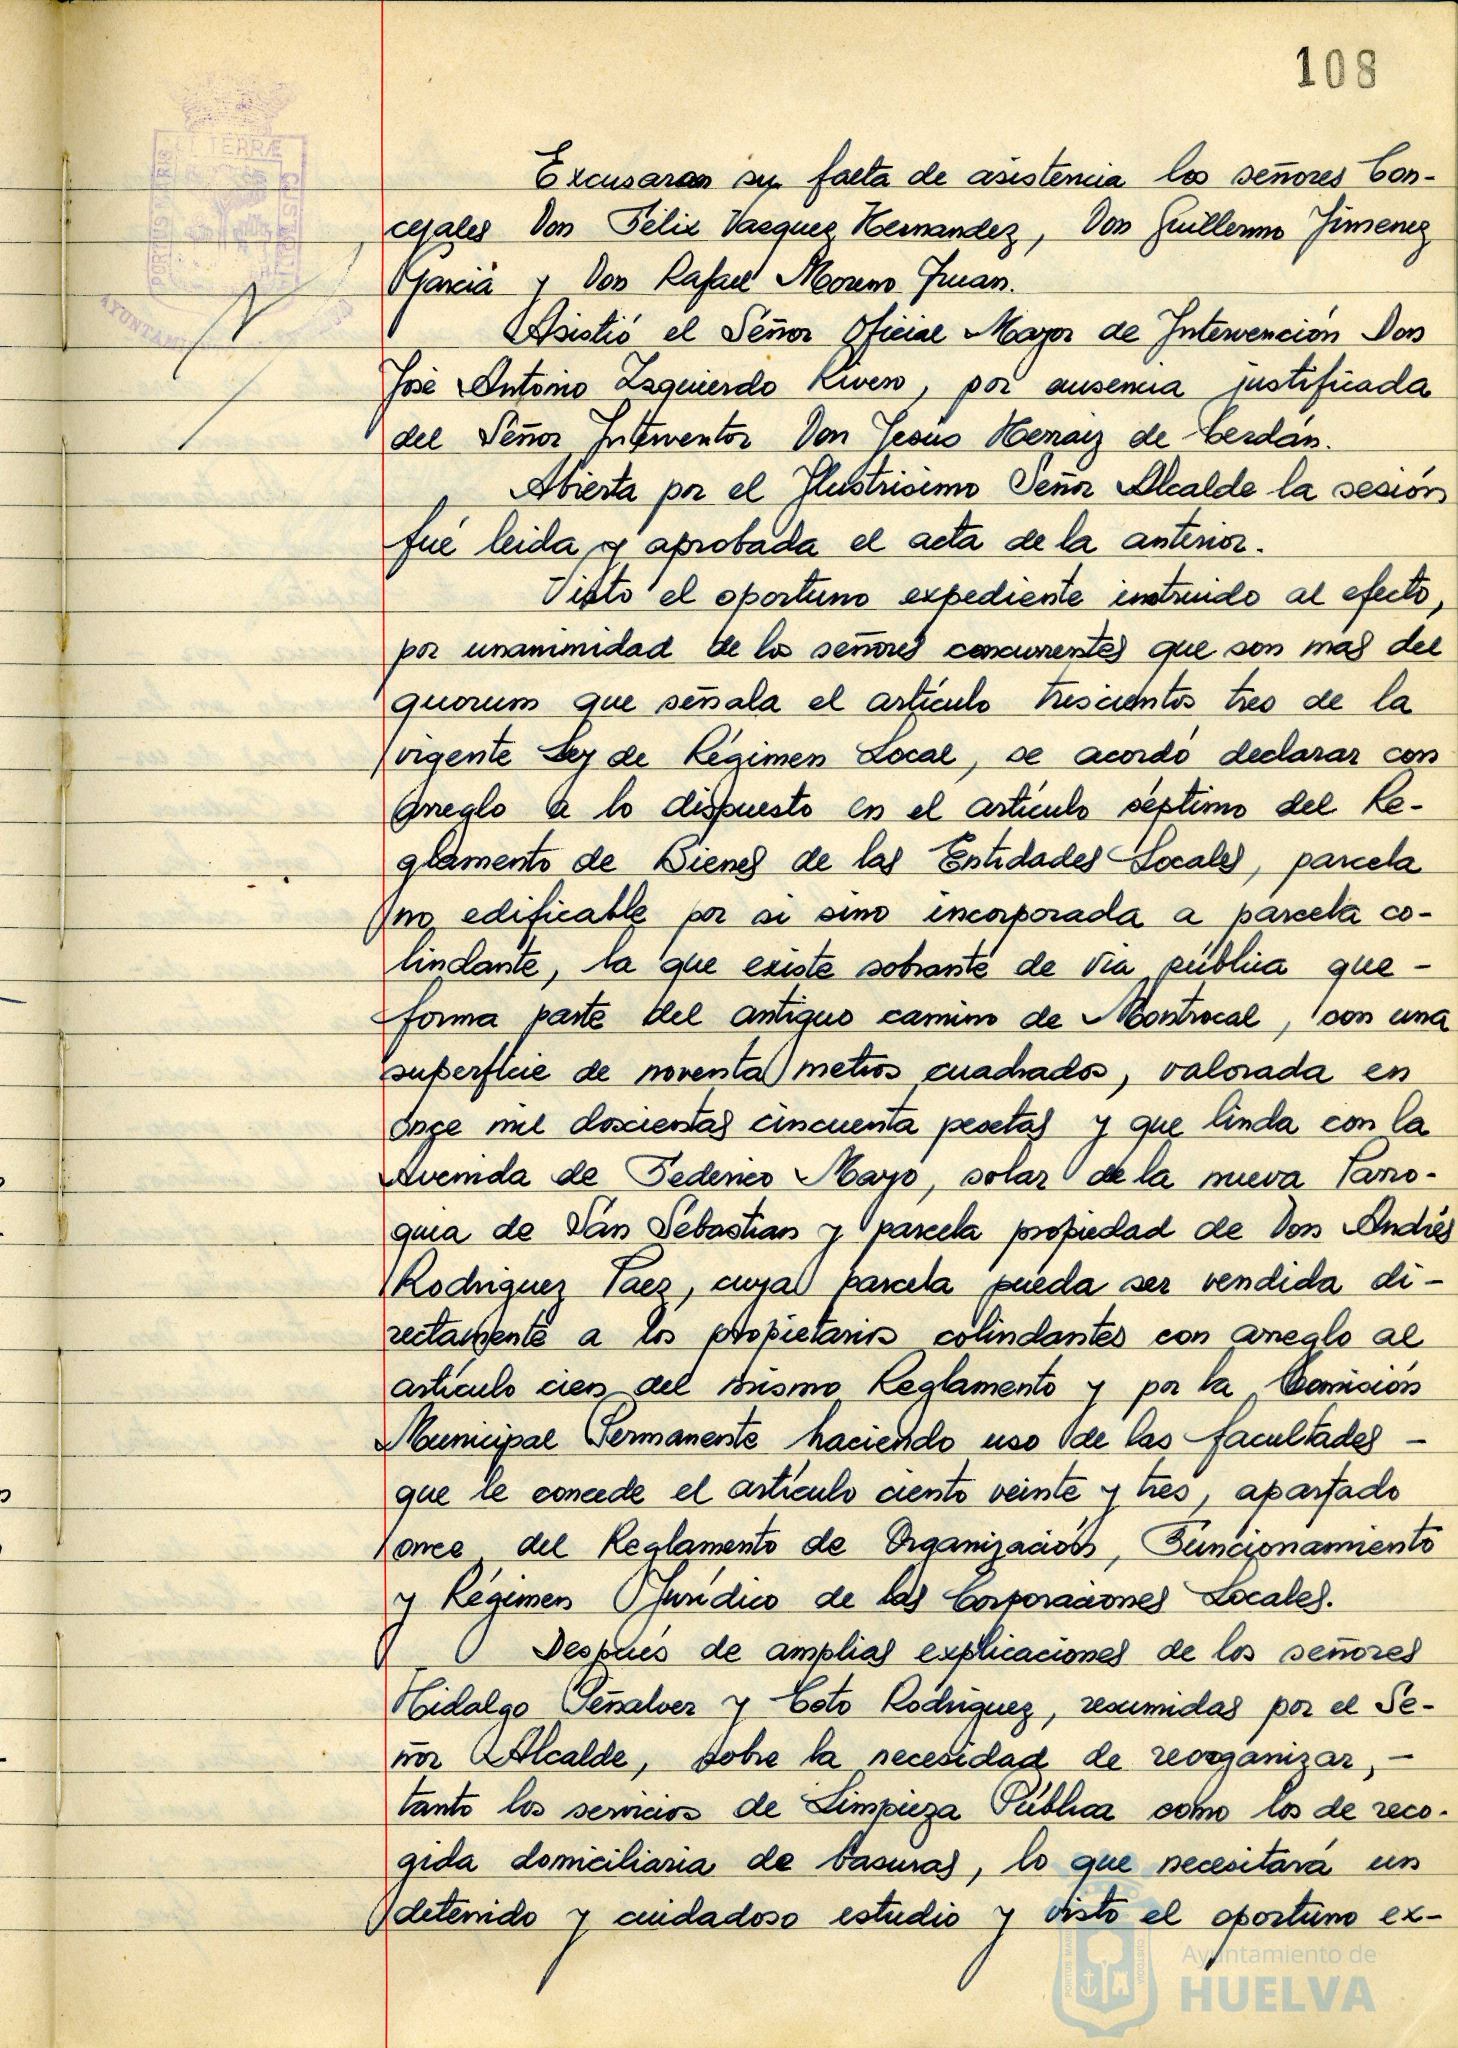 108
TERRÆ
PORTUS MARIS
CUSTODIA
Excusaron su falta de asistencia los señores Con-
cejales Don Félix Vazquez Hernandez, Don Guillermo Jimenez
Garcia y Don Rafael Moreno Juan.
Asistió el Señor Oficial Mayor de Intervención Don
José Antonio Izquierdo Rivero, por ausencia justificada
del Señor Interventor Don Jesús Herraiz de Cerdán.
Abierta por el Ilustrisimo Señor Alcalde la sesión
fué leida y aprobada el acta de la anterior.
Visto el oportuno expediente instruido al efecto,
por unanimidad de los señores concurrentes que son mas del
quorum que señala el artículo trescientos tres de la
vigente Ley de Régimen Local, se acordó declarar con
arreglo a lo dispuesto en el artículo séptimo del Re-
glamento de Bienes de las Entidades Locales, parcela
no edificable por si sino incorporada a parcela co-
lindante, la que existe sobrante de via pública que -
forma parte del antiguo camino de Montrocal, con una
superficie de noventa metros cuadrados, valorada en
once mil doscientas cincuenta pesetas y que linda con la
Avenida de Federico Mayo, solar de la nueva Parro-
quia de San Sebastian y parcela propiedad de Don Andrés
Rodriguez Paez, cuya parcela pueda ser vendida di-
rectamente a los propietarios colindantes con arreglo al
artículo cien del mismo Reglamento y por la Comisión
Municipal Permanente haciendo uso de las facultades -
que le concede el artículo ciento veinte y tres, apartado
once del Reglamento de Organización, Funcionamiento
y Régimen Jurídico de las Corporaciones Locales.
Después de amplias explicaciones de los señores
Hidalgo Peñalver y Coto Rodriguez, resumidas por el Se-
ñor Alcalde, sobre la necesidad de reorganizar, -
tanto los servicios de Limpieza Pública como los de reco-
gida domiciliaria de basuras, lo que necesitará un
detenido y cuidadoso estudio y visto el oportuno ex-
Ayuntamiento de
HUELVA